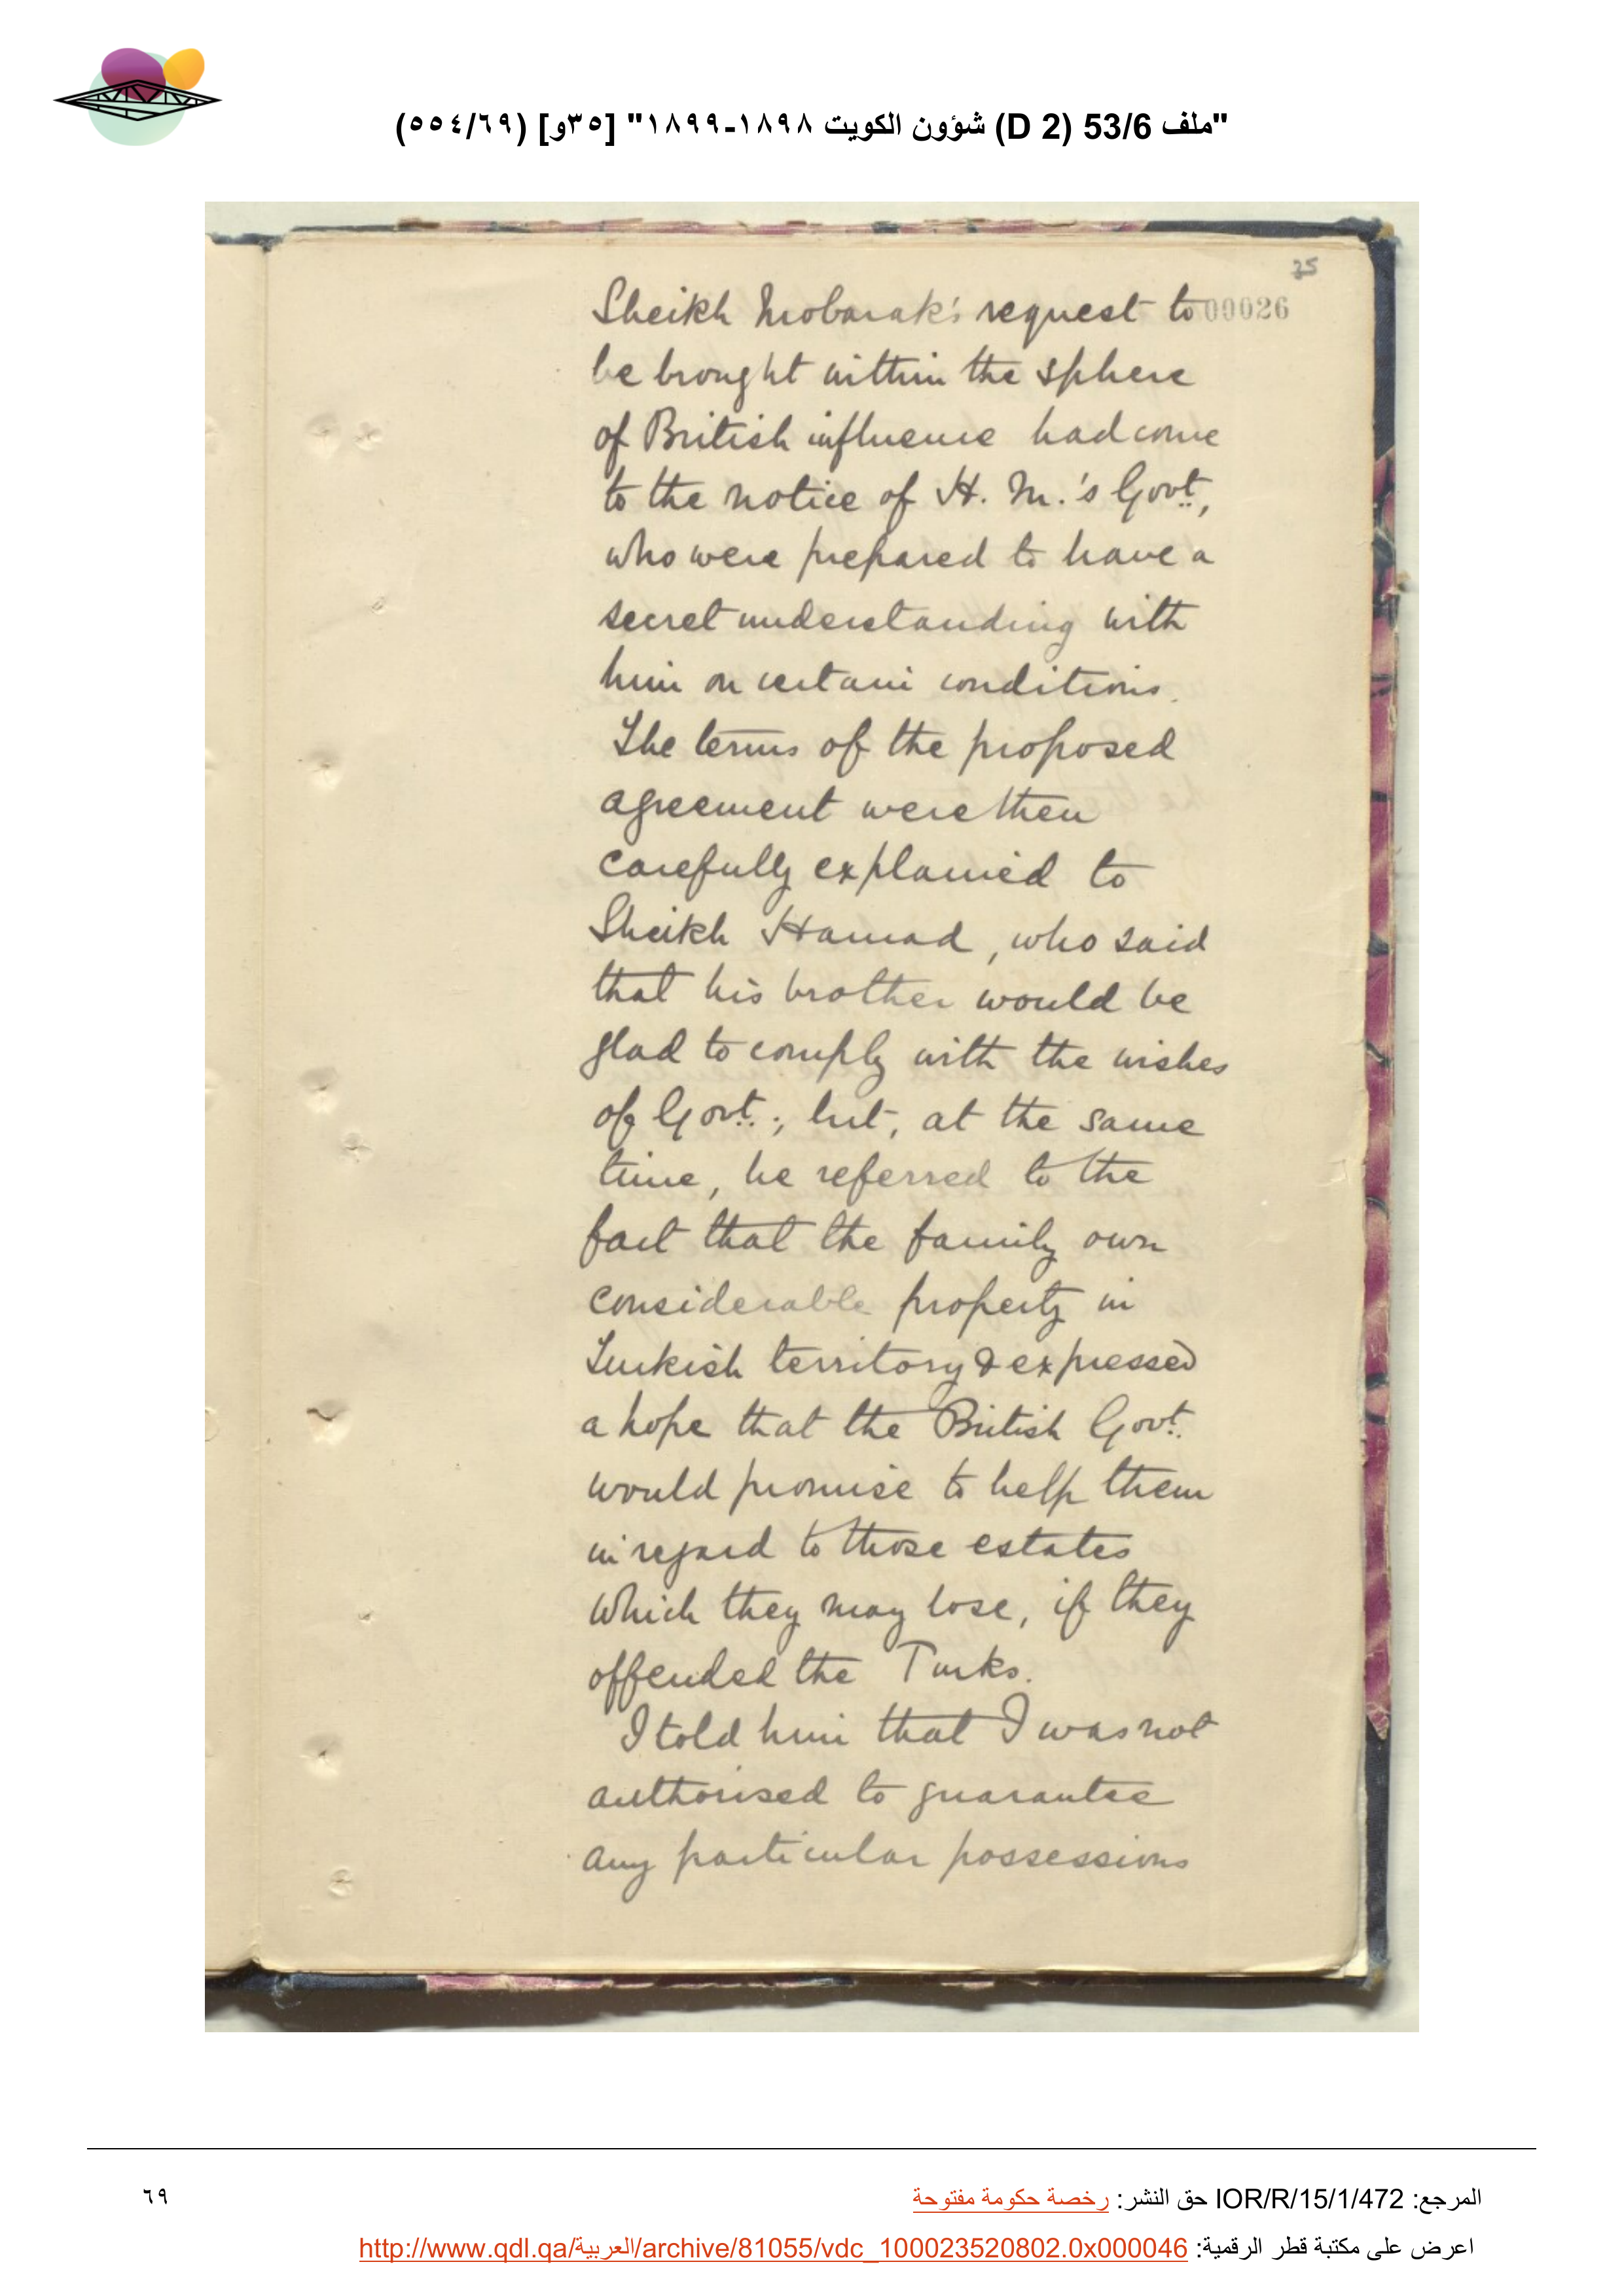 "ملف 53/6 (D 2) شؤون الكويت ١٨٩٨-١٨٩٩" [٣٥و] (٥٥٤/٦٩)
35
Sheikh Mobarak's request to 00026
be brought within the sphere
of British influence had come
to the notice of H. M.'s Govt.,
who were prepared to have a
secret understanding with
him on certain conditions.
The terms of the proposed
agreement were then
carefully explained to
Sheikh Hamad, who said
that his brother would be
glad to comply with the wishes
of Govt.; but, at the same
time, he referred to the
fact that the family own
considerable property in
Turkish territory & expressed
a hope that the British Govt.
would promise to help them
in regard to those estates
which they may lose, if they
offended the Turks.
I told him that I was not
authorised to guarantee
any particular possessions
المرجع: IOR/R/15/1/472 حق النشر: رخصة حكومة مفتوحة
٦٩
اعرض على مكتبة قطر الرقمية: http://www.qdl.qa/العربية/archive/81055/vdc_100023520802.0x000046